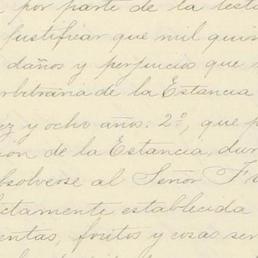 por parte de la test
justificar que mil quin
daños y perjuicios que
arbitraria de la Estancia
ez y ocho años. 2º, que p
ion de la Estancia, dur
bsolverse al Señor F
ctamente establecida
entas, foritos y cosas ser